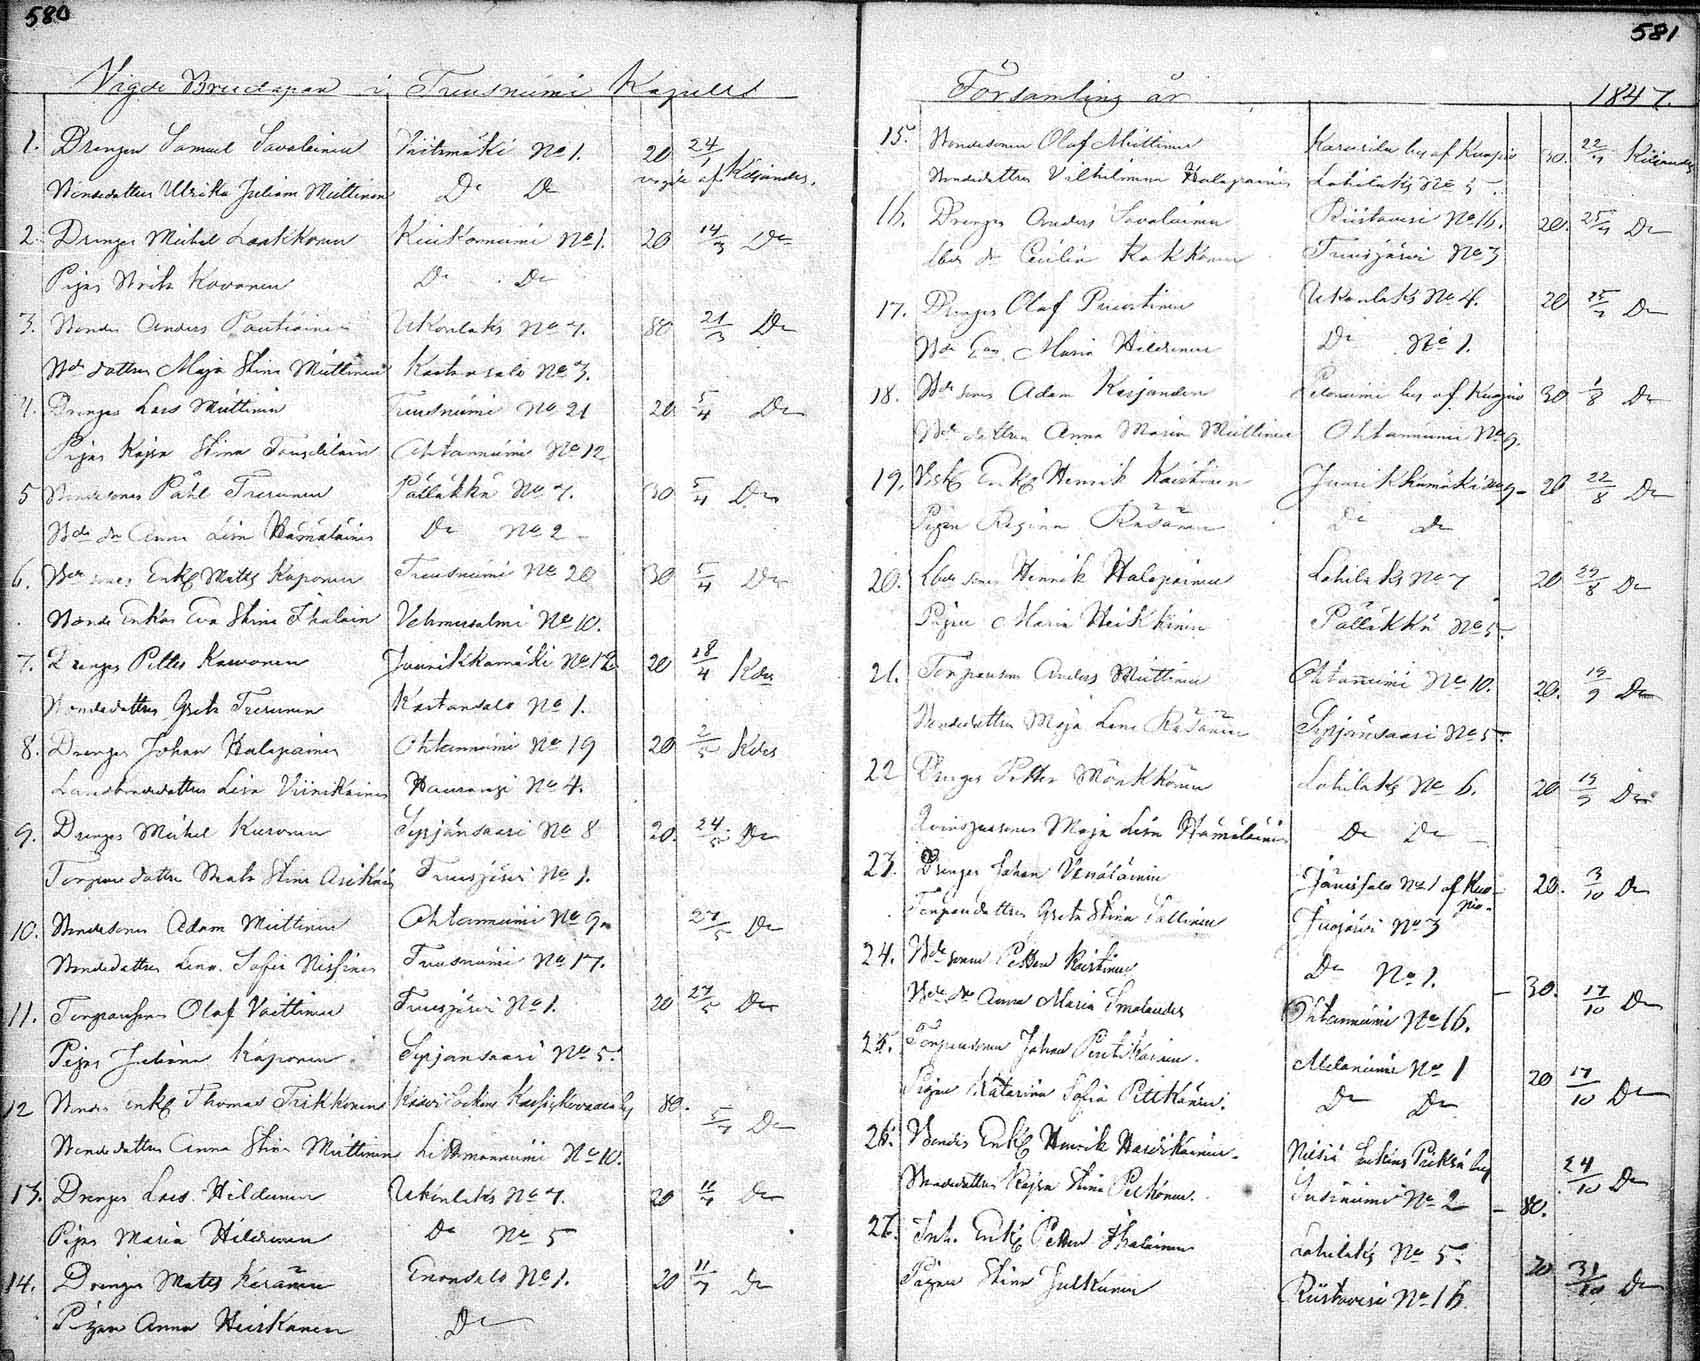 580
Vigde Brudapar i Tuusniemi Kapells
1. Drengen Samuel Savolainen Viitamäki No 1. 20 24/1
Bondedottren Ulrika Juliana Miettinen Do Do vigde af Keijander.
2. Drengen Michel Laakkonen Kiukoniemi No 1. 20 14/3 Do
Pigan Brita Kovanen Do Do
3. Bonden Anders Pautiainen Ukonlaks No 7. 80 21/3 Do
Bde dottren Maja Stina Miettinen Kartansalo No 3.
4. Drengen Lars Miettinen Tuusniemi No 21 20 5/4 Do
Pigan Kajsa Stina Ohtanniemi No 12
5 Bondesonen Påhl Turunen Pällikkä No 7. 30 5/4 Do
Bde do Anna Lisa Hämäläinen Do No 2
6. Bde sonen Enkl Matts Kaponen Tuusniemi No 20 30 5/4 Do
Bonde Enkan Eva Stina Ihalain Vehmersalmi No 10.
7. Drengen Petter Kauvonen Juurikkamäki No 12 20 18/4 Kdr
Bondedottren Greta Turunen Kartansalo No 1.
8. Drengen Johan Halapainen Ohtanniemi No 19 20 2/5 Kdr
Landbondedottren Lisa Viinikainen No 4.
9. Drengen Michel Kuronen Syrjänsaari No 8 20. 24/5 Do
Torpare dottren Stina Tuusjärvi No 1.
10. Bondesonen Adam Miettinen Ohtanniemi No 9 27/5 Do
Bondedottren Lena Sofia Nissinen Tuusniemi No 17.
11. Torparesonen Olof Voittinen Tuusjärvi No 1. 20 27/5 Do
Pigan Juliana Kaponen Syrjänsaari No 5.
12 Bonden Enkl Thomas Tirkkonen Kaavi 80. 5/7 Do
Bondedottren Anna Stina Miettinen Litmanniemi No 10.
13. Drengen Lars Hildunen Ukonlaks No 7. 20 11/7 Do
Pigan Maria Hildunen Do No 5
14. Drengen Matts Keränen Enonsalo No 1. 20 11/7 Do
Pigan Anna Heiskanen Do
581
Församling år 1847.
15. Bondesonen Olof Miettinen by af Kuopio 30. 22/7 Keijander
Bondedottren Vilhelmina Halapainen Lahilaks No 5.
16. Drengen Anders Savolainen Riistavesi No 16. 20. 25/7 Do
do Cecilia Kokkonen Tuusjärvi No 3
17. Drengen Olof Puustinen Ukonlaks No 4. 20 25/7 Do
Bde Maria Hildunen Do No 1.
18. Bde sonen Adam Keijander Pelonniemi by af Kuopio 30 1/8 Do
Bde dottren Anna Maria Miettinen Ohtanniemi No 9.
19. Enkl Henrik Juurikkamäki No 9 20 22/8 Do
Pigan Regina Räsänen Do Do
20. sonen Henrik Halapainen Lahilaks No 7 20 29/8 Do
Pigan Maria Heikkinen Pällikkä No 5.
21. Torparesonen Anders Miettinen Ohtanniemi No 10. 20. 19/9 Do
Bondedottren Maja Lena Räsänen Syrjänsaari No 5.
22 Drengen Petter Mönkkönen Lahilaks No 6. 20 19/9 Do
Maja Lisa Hämäläinen Do Do
23. Drengen Johan Venäläinen Jänissalo No 1 af Kuopio. 20. 3/10 Do
Torparedottren Greta Stina Tuusjärvi No 3
24. Bde sonen Petter Do No 1. 30. 17/10 Do
Bde do Anna Maria Smalander Ohtanniemi No 16.
25. Torparesonen Johan Pentikäinen. Melaniemi No 1 20 17/10 Do
Pigan Katarina Sofia Pitkänen. Do Do
26. Bonden Enkl Henrik Nilsiä Sockens by 24/10 Do
Bondedottren Kajsa Stina Pekonen. No 2 80.
27. Inh. Enkl Petter Ihalainen Lahilaks No 5 20 31/10 Do
Pigan Stina Julkunen Riistavesi No 16